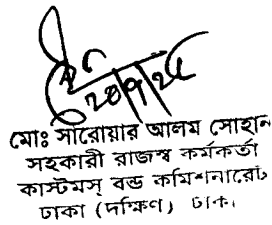 ২৪/৭/২৫
মোঃ সারোয়ার আলম সোহান
সহকারী রাজস্ব কর্মকর্তা
কাস্টমস্ বন্ড কমিশনারেট
ঢাকা (দক্ষিণ) ঢাকা।